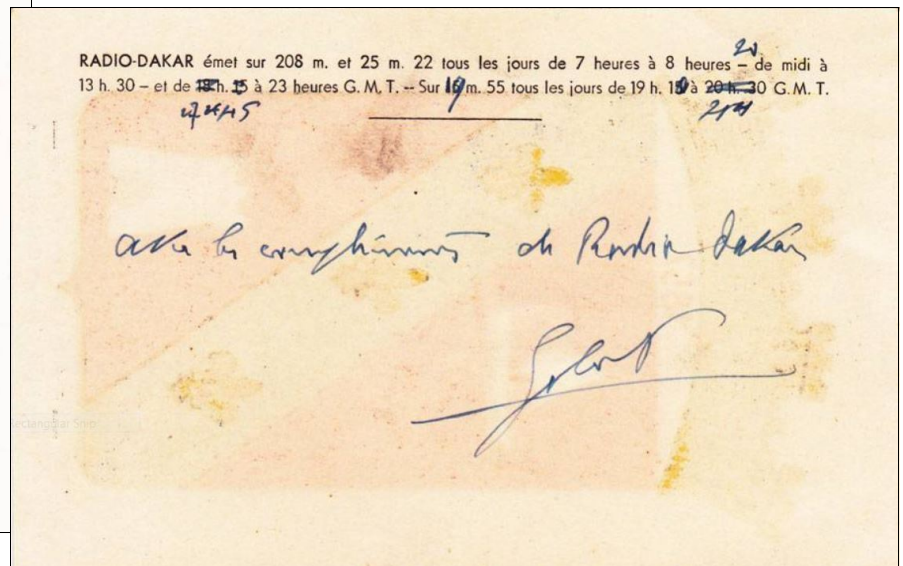 20
RADIO-DAKAR émet sur 208 m. et 25 m. 22 tous les jours de 7 heures à 8 heures – de midi à
13 h. 30 – et de 18 h. 15 à 23 heures G. M. T. -- Sur 19 m. 55 tous les jours de 19 h. 15 à 20 h. 30 G. M. T.
avec les compliments de Radio Dakar